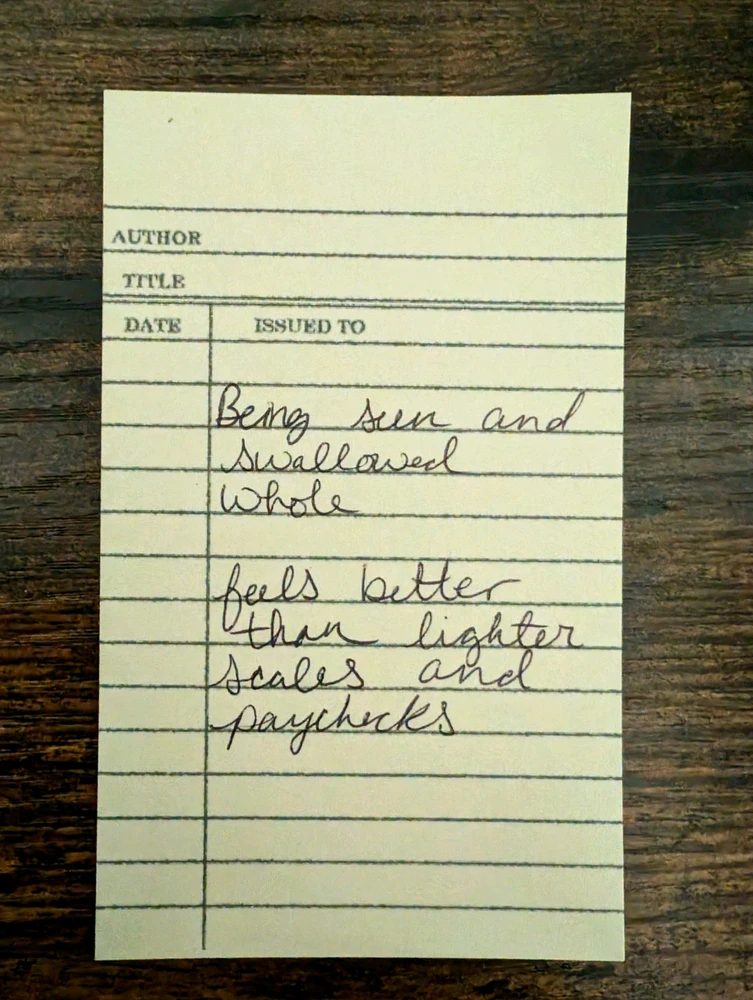 AUTHOR
TITLE
DATE ISSUED TO
Being seen and
swallowed
whole
feels better
than lighter
scales and
paychecks